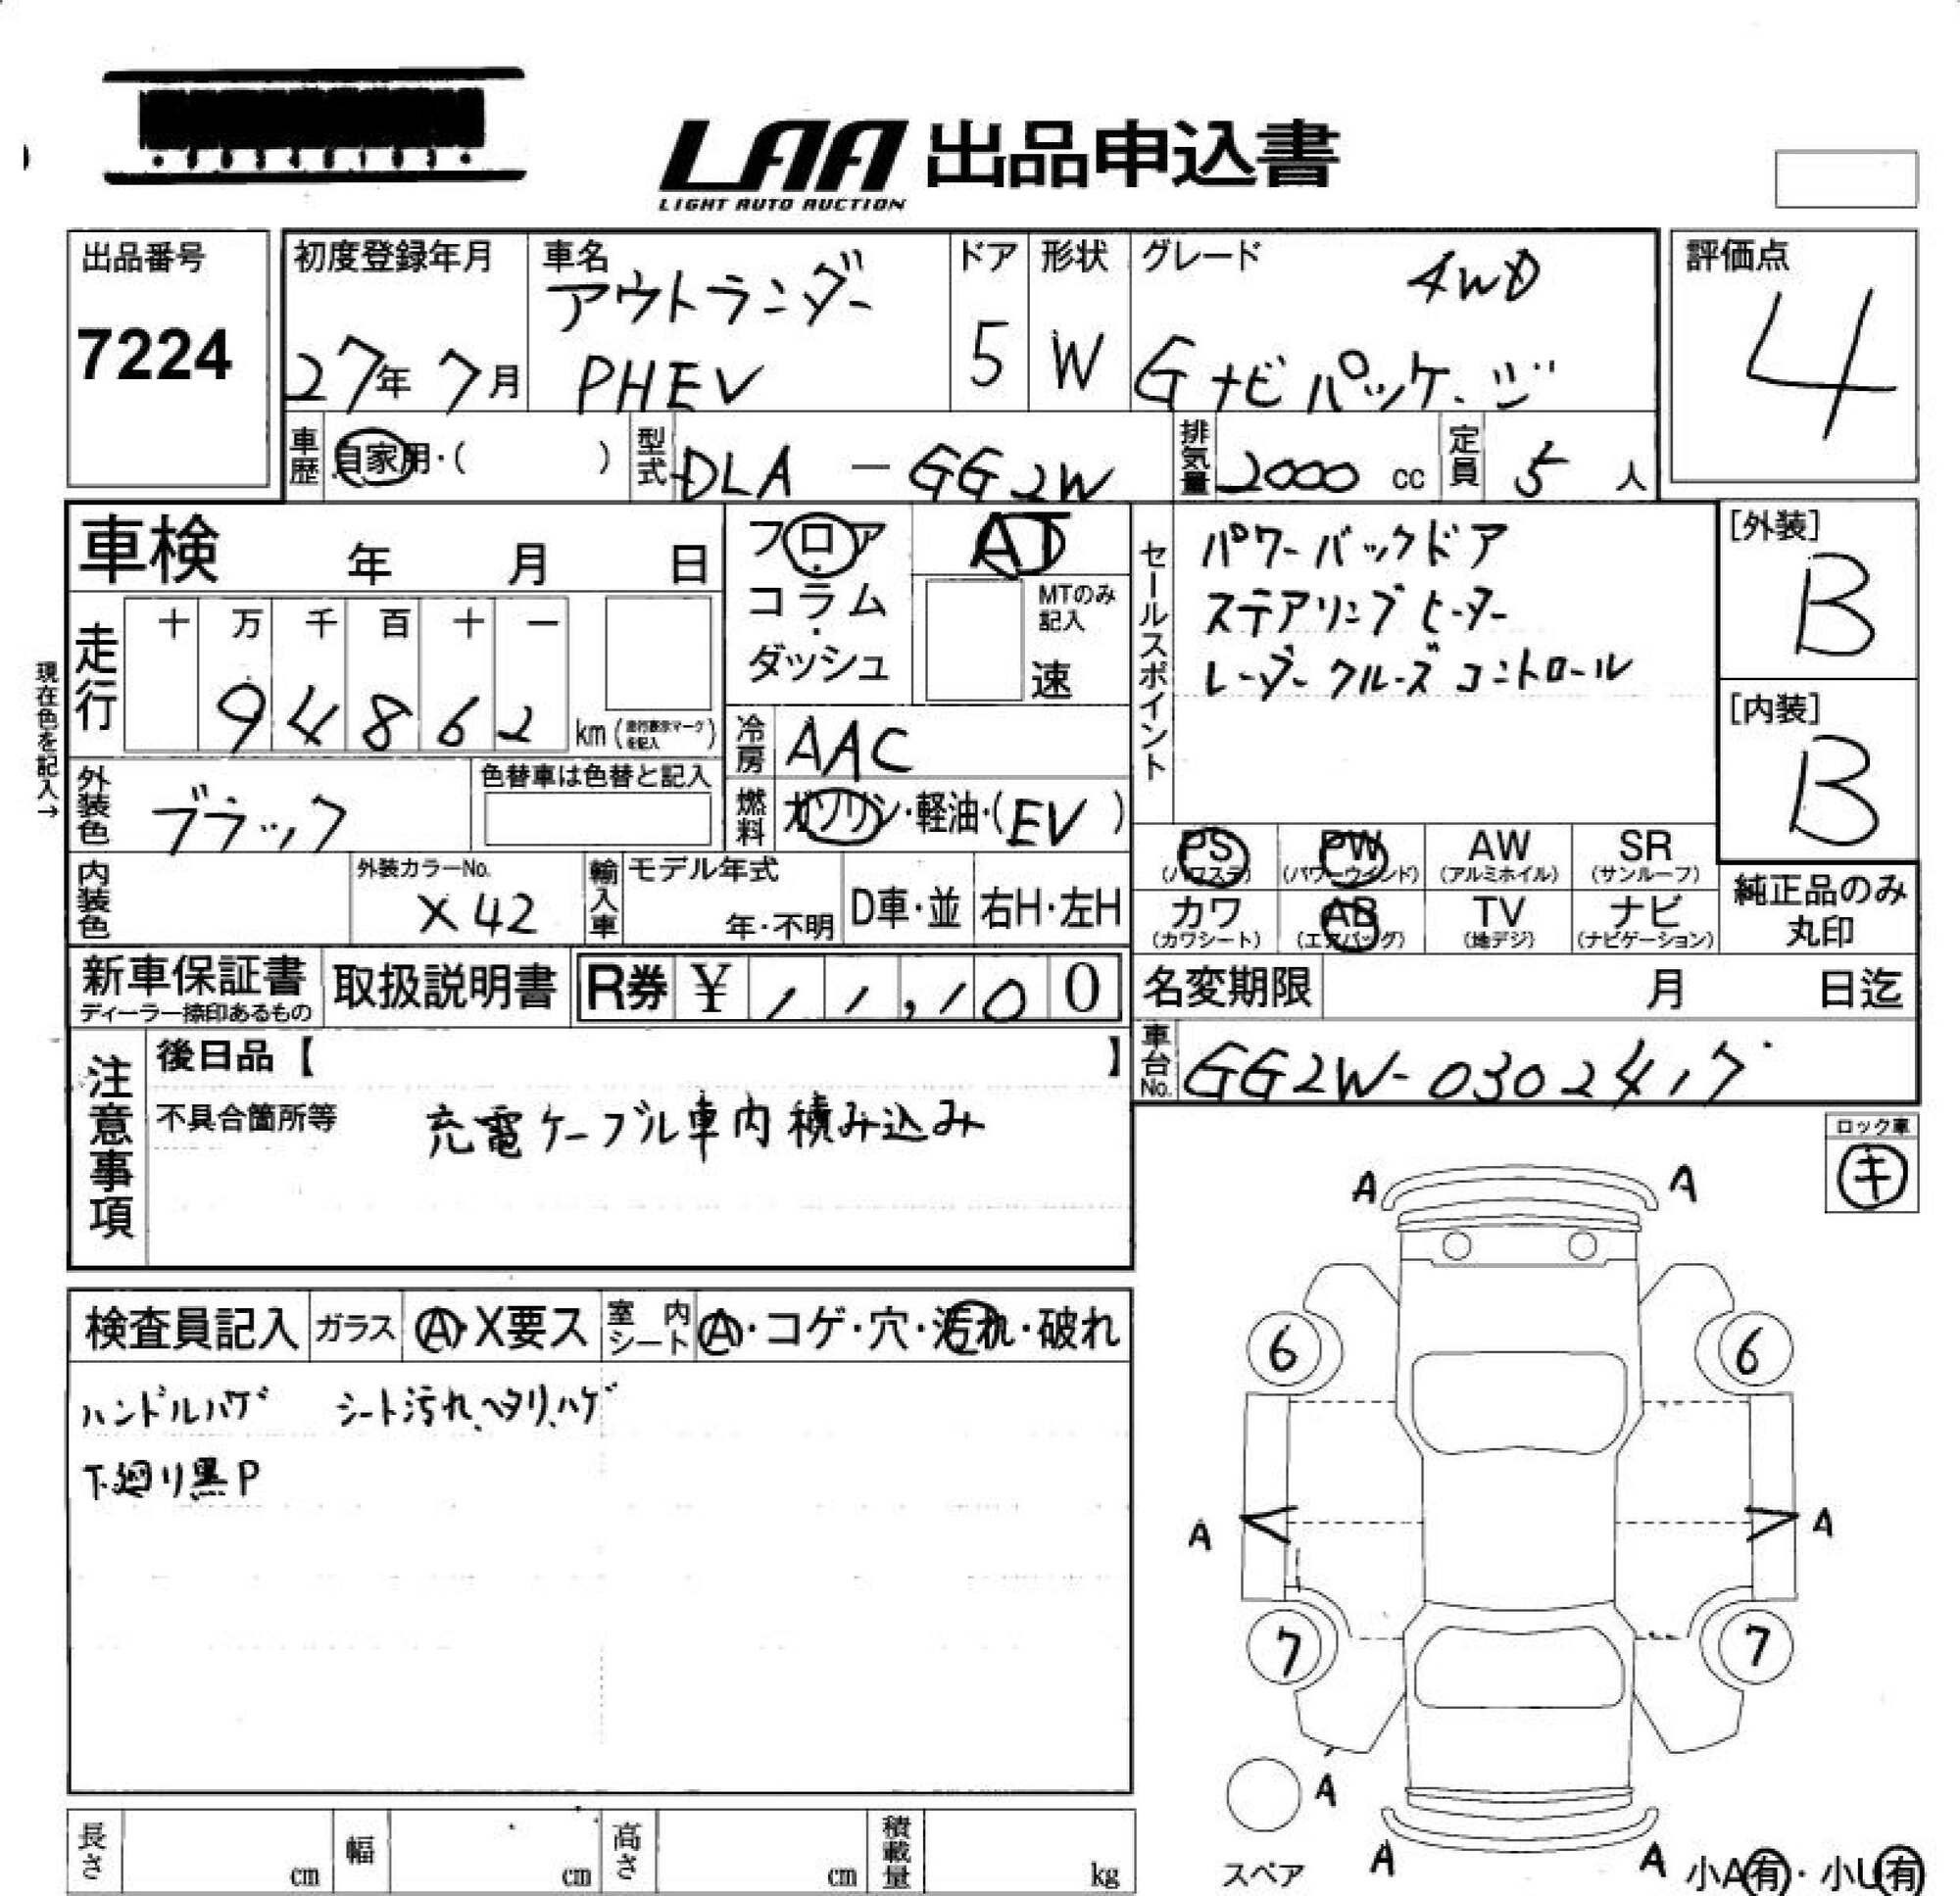 LAA 出品申込書
LIGHT AUTO AUCTION
出品番号
7224
初度登録年月
27年 7月
車名
アウトランダー
PHEV
ドア
5
形状
W
グレード
4WD
Gナビパッケージ
評価点
4
車歴 自家用・( )
型式 DLA - GG2W
排気量 2000 cc
定員 5 人
車検 年 月 日
フロア
コラム
ダッシュ
AT
MTのみ
記入
速
セールスポイント
パワーバックドア
ステアリングヒーター
レーダークルーズコントロール
[外装]
B
[内装]
B
現在色を記入→
走行
十 万 千 百 十 一
9 4 8 6 2 km (走行表示マークを記入)
冷房 AAC
外装色 ブラック
色替車は色替と記入
燃料 ガソリン・軽油・(EV)
内装色
外装カラーNo.
X42
輸入車
モデル年式
年・不明
D車・並
右H・左H
PS
(パワステ)
PW
(パワーウインド)
AW
(アルミホイル)
SR
(サンルーフ)
カワ
(カワシート)
AB
(エアバッグ)
TV
(地デジ)
ナビ
(ナビゲーション)
純正品のみ
丸印
新車保証書
ディーラー捺印あるもの
取扱説明書
R券 ¥ 11,100
名変期限 月 日迄
車台No. GG2W-0302417
注意事項
後日品【 】
不具合箇所等
充電ケーブル車内積み込み
ロック車
キ
検査員記入
ガラス A・X要ス
室内シート A・コゲ・穴・汚れ・破れ
ハンドルハゲ シート汚れ、ヘタリ、ハゲ
下廻り黒P
A A
6 6
A A
7 7
A
A A
スペア
小A有・小U有
長さ cm
幅 cm
高さ cm
積載量 kg